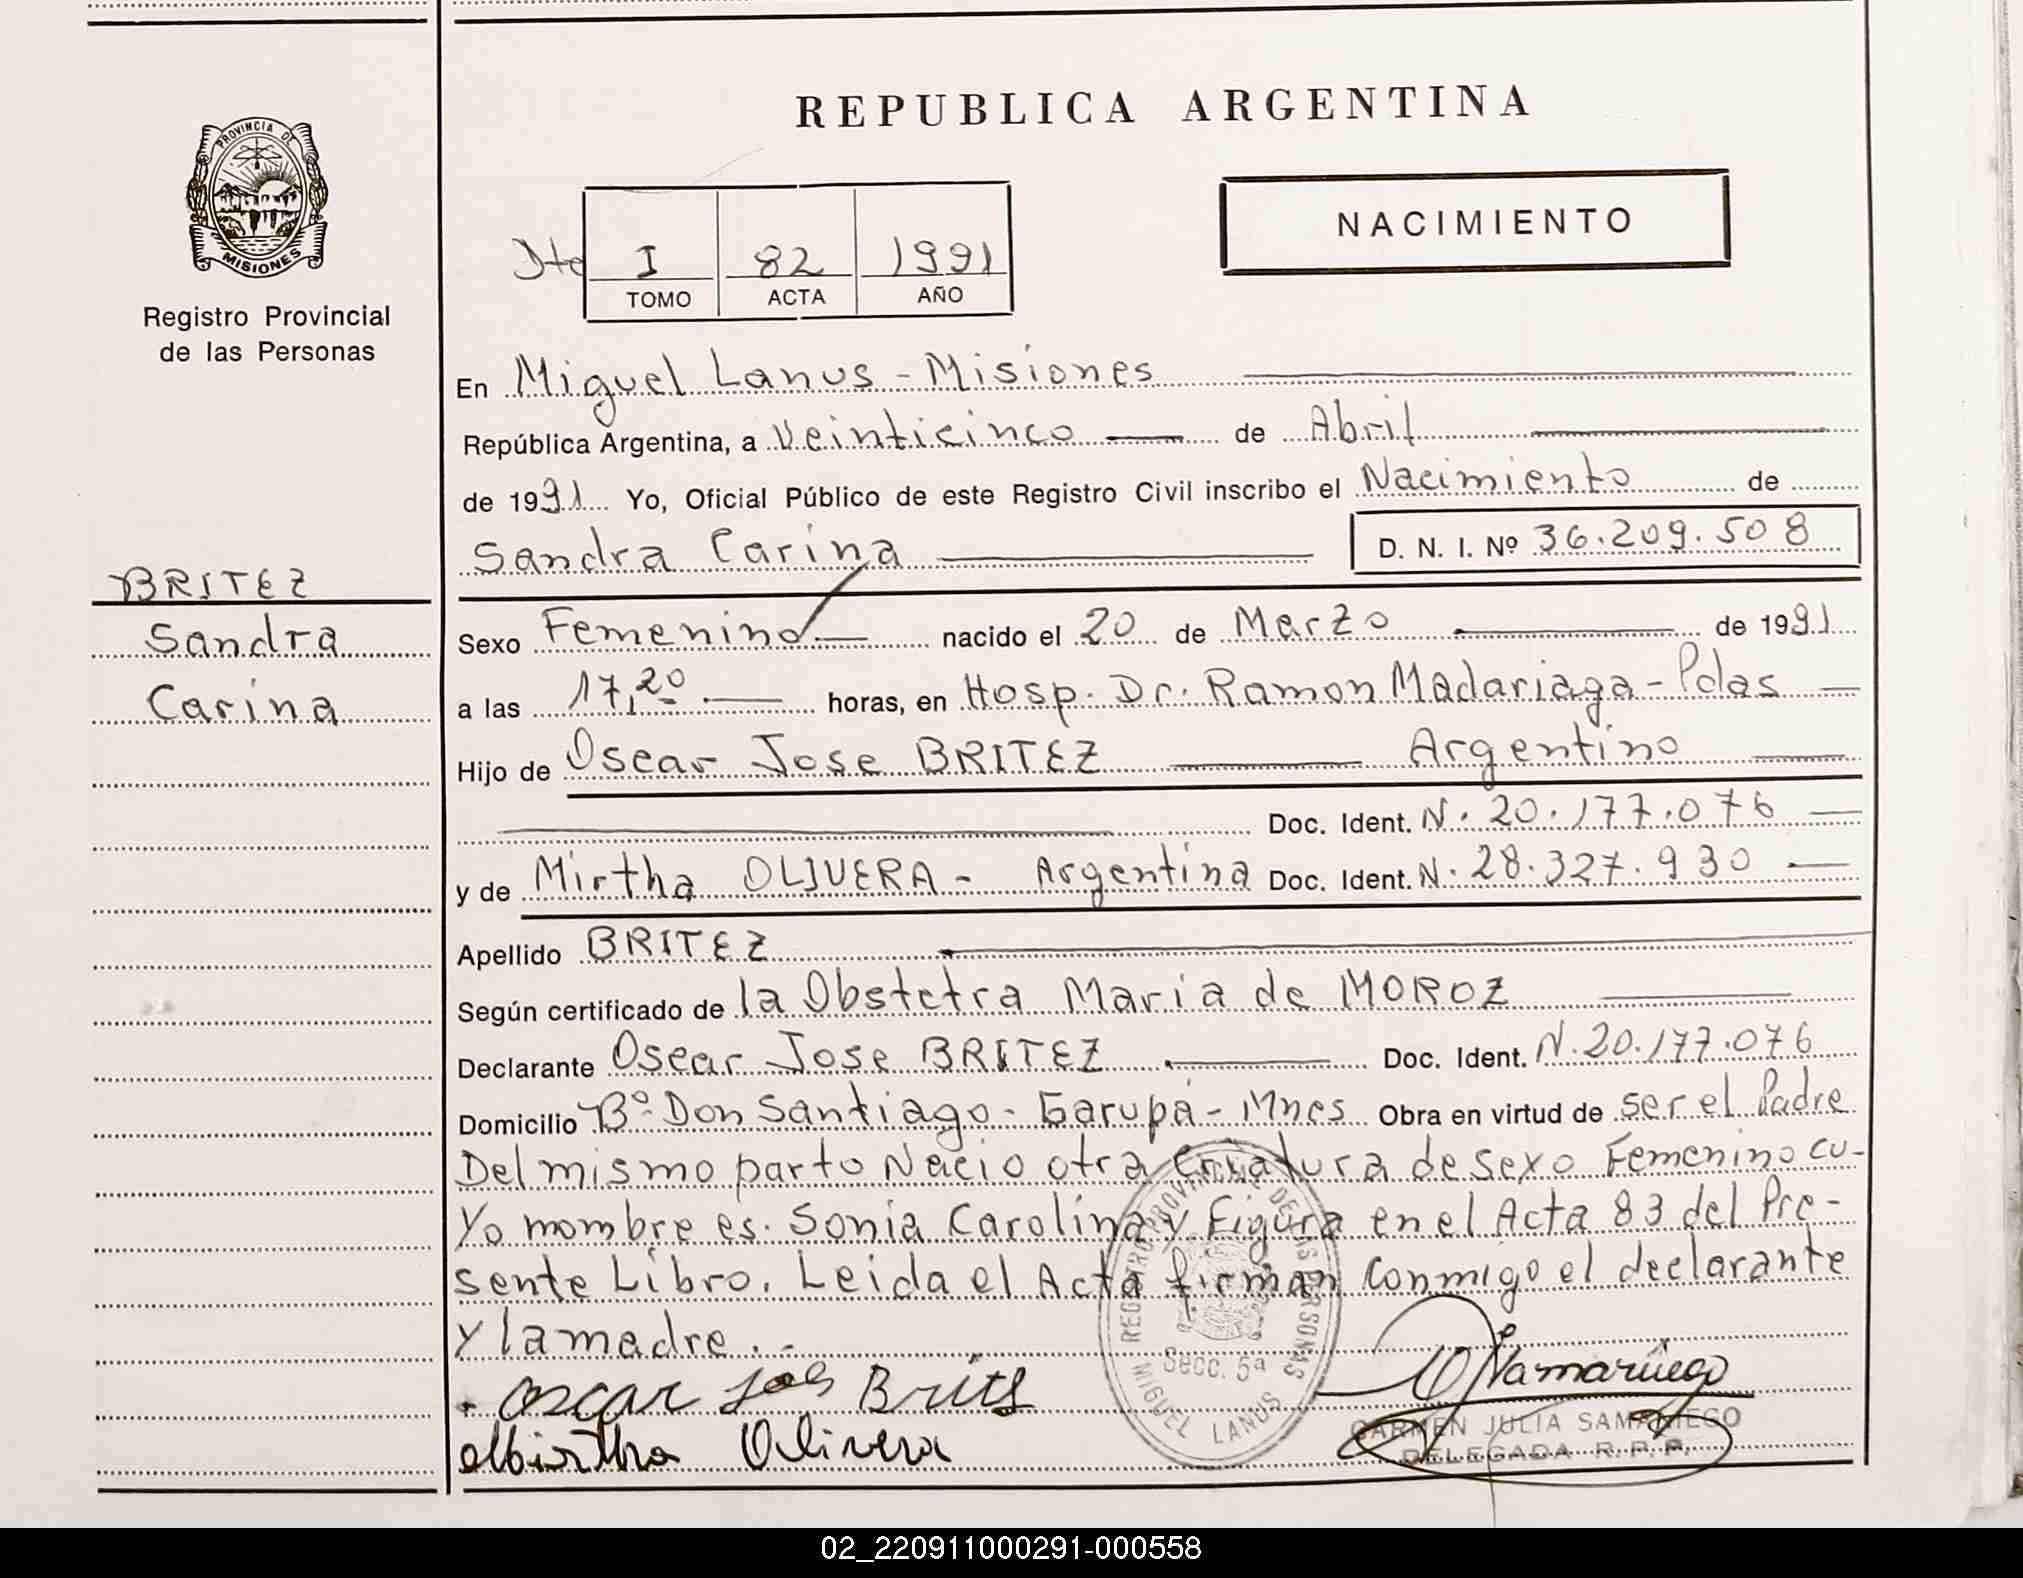 REPUBLICA ARGENTINA
PROVINCIA DE
MISIONES
Registro Provincial
de las Personas
NACIMIENTO
Dto I 82 1991
TOMO ACTA AÑO
En Miguel Lanus - Misiones
República Argentina, a Veinticinco de Abril
de 1991 Yo, Oficial Público de este Registro Civil inscribo el Nacimiento de
Sandra Carina D. N. I. Nº 36.209.508
BRITEZ
Sandra
Carina
Sexo Femenino nacido el 20 de Marzo de 1991
a las 17,20 horas, en Hosp. Dr. Ramon Madariaga - Pdas
Hijo de Oscar Jose BRITEZ Argentino
Doc. Ident. N. 20.177.076
y de Mirtha OLIVERA - Argentina Doc. Ident. N. 28.327.930
Apellido BRITEZ
Según certificado de la Obstetra Maria de MOROZ
Declarante Oscar Jose BRITEZ Doc. Ident. N. 20.177.076
Domicilio Bº Don Santiago - Garupa - Mnes Obra en virtud de ser el Padre
Del mismo parto Nacio otra Criatura de sexo Femenino cu-
yo mombre es. Sonia Carolina y Figura en el Acta 83 del Pre-
sente Libro. Leida el Acta firman conmigo el declarante
y la madre. -
REGISTRO PROVINCIAL DE LAS PERSONAS
Secc. 5ª
MIGUEL LANUS
Oscar Britz
Mirtha Olivera
Samaniego
CARMEN JULIA SAMANIEGO
DELEGADA R. P. P.
02_220911000291-000558